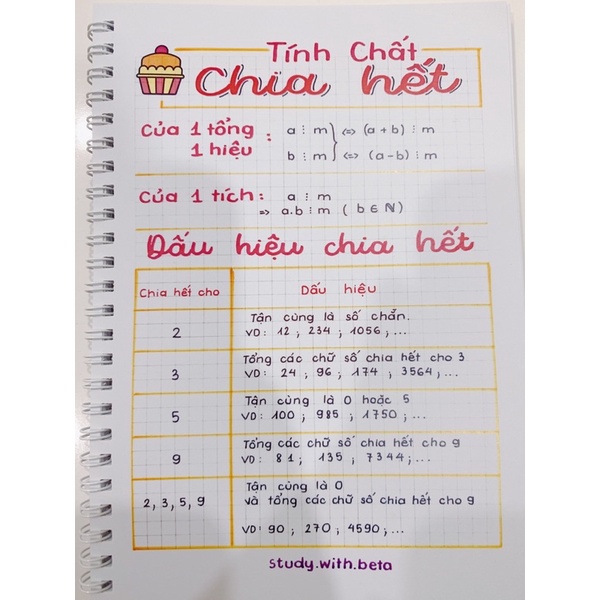 Tính Chất
Chia hết
Của 1 tổng : a ⋮ m } <=> (a + b) ⋮ m
1 hiệu b ⋮ m } <=> (a - b) ⋮ m
Của 1 tích : a ⋮ m
=> a.b ⋮ m ( b ∈ ℕ )
Dấu hiệu chia hết
Chia hết cho Dấu hiệu
2 Tận cùng là số chẵn.
VD : 12 ; 234 ; 1056 ; ...
3 Tổng các chữ số chia hết cho 3
VD : 24 ; 96 ; 174 ; 3564 ; ...
5 Tận cùng là 0 hoặc 5
VD : 100 ; 985 ; 1750 ; ...
9 Tổng các chữ số chia hết cho 9
VD : 81 ; 135 ; 7344 ; ...
2, 3, 5, 9 Tận cùng là 0
và tổng các chữ số chia hết cho 9
VD : 90 ; 270 ; 4590 ; ...
study.with.beta